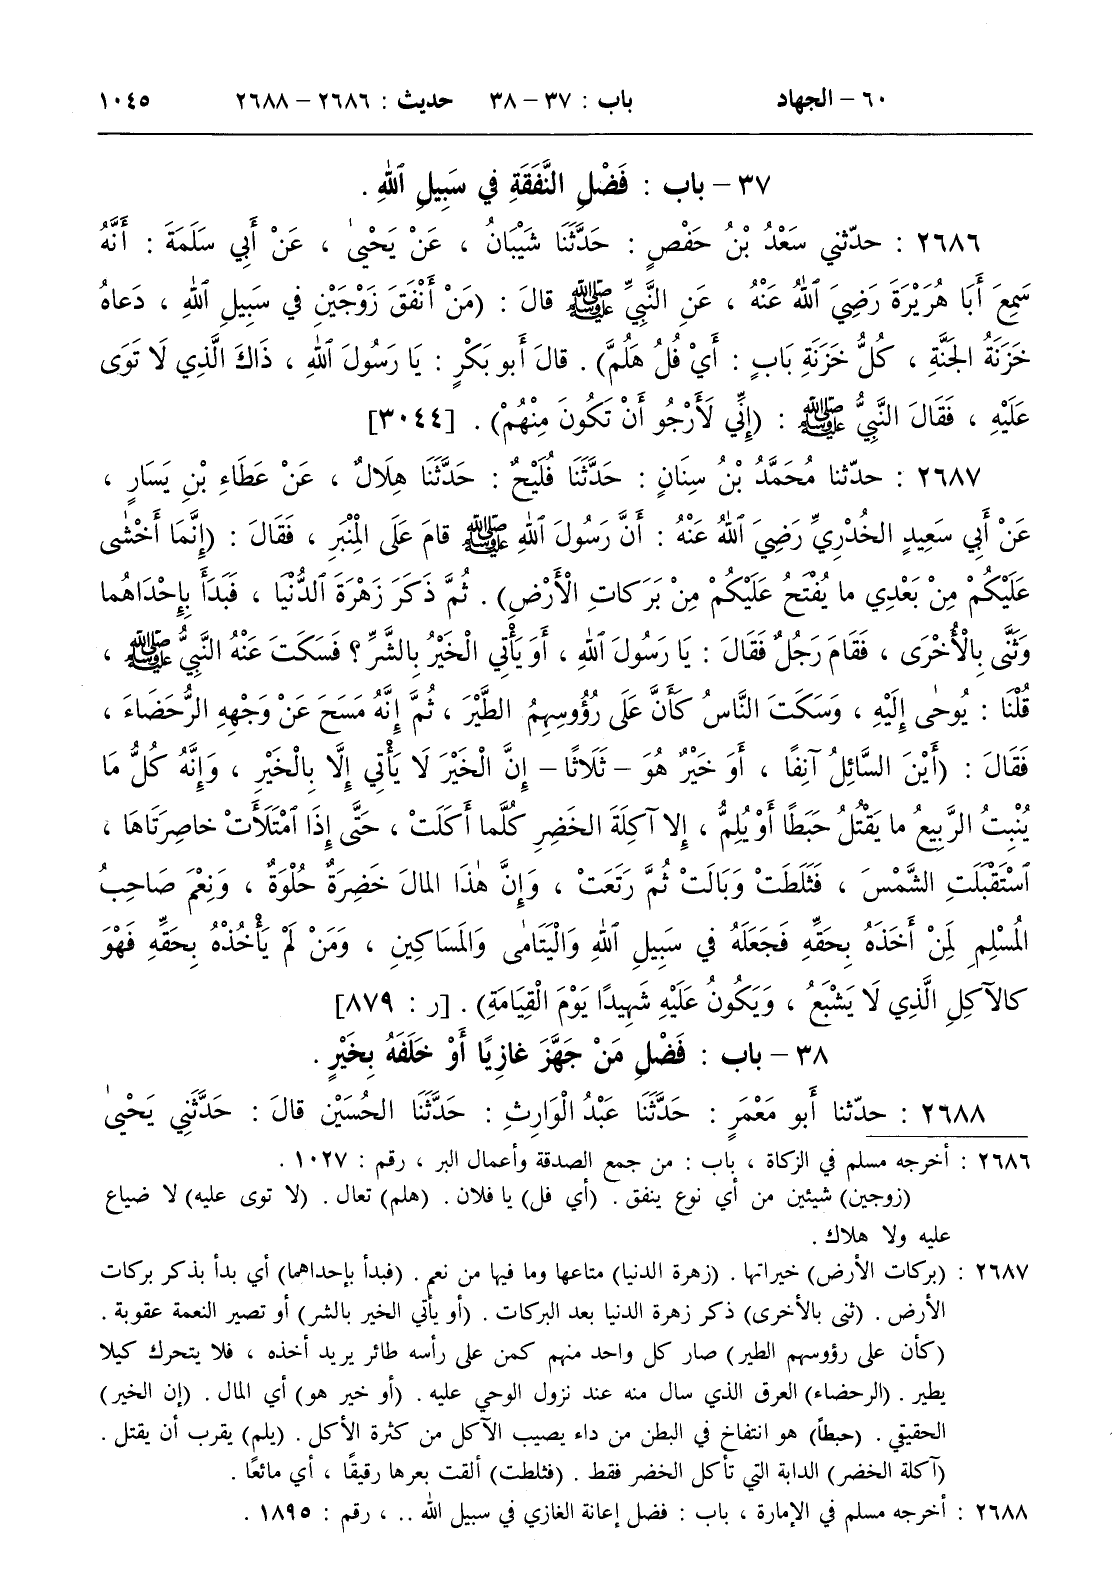 ٦٠ – الجهاد باب : ٣٧ – ٣٨ حديث : ٢٦٨٦ – ٢٦٨٨ ١٠٤٥
٣٧ – باب : فَضْلِ النَّفَقَةِ في سَبِيلِ ٱللهِ .
٢٦٨٦ : حدّثني سَعْدُ بْنُ حَفْصٍ : حَدَّثَنَا شَيْبَانُ ، عَنْ يَحْيىٰ ، عَنْ أَبِي سَلَمَةَ : أَنَّهُ
سَمِعَ أَبَا هُرَيْرَةَ رَضِيَ ٱللهُ عَنْهُ ، عَنِ النَّبِيِّ ﷺ قالَ : (مَنْ أَنْفَقَ زَوْجَيْنِ في سَبِيلِ ٱللهِ ، دَعاهُ
خَزَنَةُ الجَنَّةِ ، كُلُّ خَزَنَةِ بَابٍ : أَيْ فُلُ هَلُمَّ) . قالَ أَبو بَكْرٍ : يَا رَسُولَ ٱللهِ ، ذَاكَ الَّذِي لَا تَوَى
عَلَيْهِ ، فَقَالَ النَّبِيُّ ﷺ : (إِنِّي لَأَرْجُو أَنْ تَكُونَ مِنْهُمْ) . [٣٠٤٤]
٢٦٨٧ : حدّثنا مُحَمَّدُ بْنُ سِنَانٍ : حَدَّثَنَا فُلَيْحٌ : حَدَّثَنَا هِلَالٌ ، عَنْ عَطَاءِ بْنِ يَسَارٍ ،
عَنْ أَبِي سَعِيدٍ الخُدْرِيِّ رَضِيَ ٱللهُ عَنْهُ : أَنَّ رَسُولَ ٱللهِ ﷺ قامَ عَلَى الْمِنْبَرِ ، فَقَالَ : (إِنَّمَا أَخْشٰى
عَلَيْكُمْ مِنْ بَعْدِي ما يُفْتَحُ عَلَيْكُمْ مِنْ بَرَكاتِ الْأَرْضِ) . ثُمَّ ذَكَرَ زَهْرَةَ ٱلدُّنْيَا ، فَبَدَأَ بِإِحْدَاهُما
وَثَنَّى بِالْأُخْرَى ، فَقَامَ رَجُلٌ فَقَالَ : يَا رَسُولَ ٱللهِ ، أَوَ يَأْتِي الْخَيْرُ بِالشَّرِّ ؟ فَسَكَتَ عَنْهُ النَّبِيُّ ﷺ ،
قُلْنَا : يُوحٰى إِلَيْهِ ، وَسَكَتَ النَّاسُ كَأَنَّ عَلَى رُؤُوسِهِمُ الطَّيْرَ ، ثُمَّ إِنَّهُ مَسَحَ عَنْ وَجْهِهِ الرُّحَضَاءَ ،
فَقَالَ : (أَيْنَ السَّائِلُ آنِفًا ، أَوَ خَيْرٌ هُوَ – ثَلَاثًا – إِنَّ الْخَيْرَ لَا يَأْتِي إِلَّا بِالْخَيْرِ ، وَإِنَّهُ كُلُّ مَا
يُنْبِتُ الرَّبِيعُ ما يَقْتُلُ حَبَطًا أَوْ يُلِمُّ ، إِلا آكِلَةَ الخَضِرِ كُلَّما أَكَلَتْ ، حَتَّى إِذَا ٱمْتَلَأَتْ خاصِرَتَاهَا ،
ٱسْتَقْبَلَتِ الشَّمْسَ ، فَثَلَطَتْ وَبَالَتْ ثُمَّ رَتَعَتْ ، وَإِنَّ هٰذَا المَالَ خَضِرَةٌ حُلْوَةٌ ، وَنِعْمَ صَاحِبُ
المُسْلِمِ لِمَنْ أَخَذَهُ بِحَقِّهِ فَجَعَلَهُ في سَبِيلِ ٱللهِ وَالْيَتَامٰى وَالمَسَاكِينِ ، وَمَنْ لَمْ يَأْخُذْهُ بِحَقِّهِ فَهْوَ
كالآكِلِ الَّذِي لَا يَشْبَعُ ، وَيَكُونُ عَلَيْهِ شَهِيدًا يَوْمَ الْقِيَامَةِ) . [ر : ٨٧٩]
٣٨ – باب : فَضْلِ مَنْ جَهَّزَ غازِيًا أَوْ خَلَفَهُ بِخَيْرٍ .
٢٦٨٨ : حدّثنا أَبو مَعْمَرٍ : حَدَّثَنَا عَبْدُ الْوَارِثِ : حَدَّثَنَا الحُسَيْن قالَ : حَدَّثَنِي يَحْيىٰ
٢٦٨٦ : أخرجه مسلم في الزكاة ، باب : من جمع الصدقة وأعمال البر ، رقم : ١٠٢٧ .
(زوجين) شيئين من أي نوع ينفق . (أي فل) يا فلان . (هلم) تعال . (لا توى عليه) لا ضياع
عليه ولا هلاك .
٢٦٨٧ : (بركات الأرض) خيراتها . (زهرة الدنيا) متاعها وما فيها من نعم . (فبدأ بإحداهما) أي بدأ بذكر بركات
الأرض . (ثنى بالأخرى) ذكر زهرة الدنيا بعد البركات . (أو يأتي الخير بالشر) أو تصير النعمة عقوبة .
(كأن على رؤوسهم الطير) صار كل واحد منهم كمن على رأسه طائر يريد أخذه ، فلا يتحرك كيلا
يطير . (الرحضاء) العرق الذي سال منه عند نزول الوحي عليه . (أو خير هو) أي المال . (إن الخير)
الحقيقي . (حبطاً) هو انتفاخ في البطن من داء يصيب الآكل من كثرة الأكل . (يلم) يقرب أن يقتل .
(آكلة الخضر) الدابة التي تأكل الخضر فقط . (فثلطت) ألقت بعرها رقيقًا ، أي مائعًا .
٢٦٨٨ : أخرجه مسلم في الإمارة ، باب : فضل إعانة الغازي في سبيل الله .. ، رقم : ١٨٩٥ .